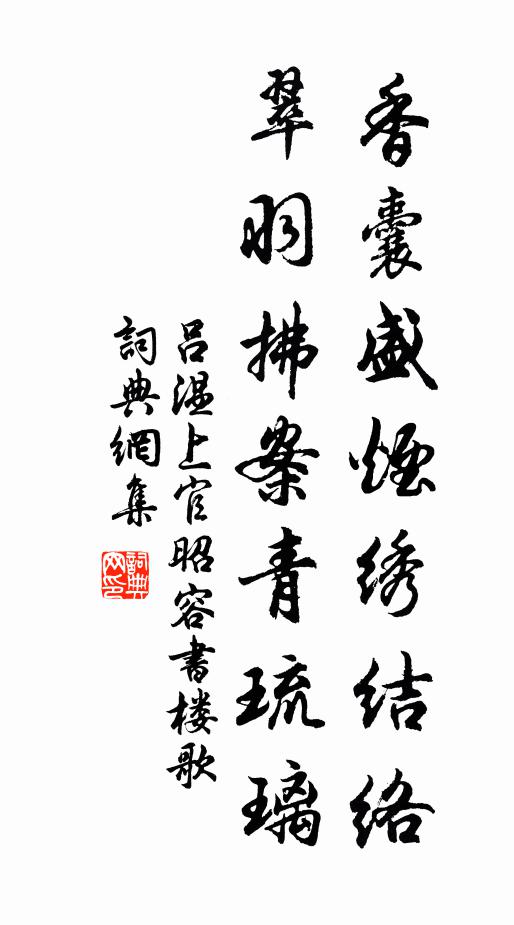 香囊盛煙綉结络
翠羽拂案青琉璃
吕温上官昭容書楼歌
詞典網集
詞典网印